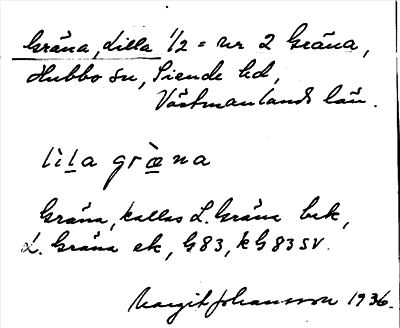 Gräna, Lilla 1/2 = nr 2 Gräna,
Hubbo sn, Siende hd,
Västmanlands län.
lìl̲a græ̲̀na
Gräna, kallas L. Gräna bek,
L. Gräna ek, G83, kG83SV.
Margit Johansson 1936.